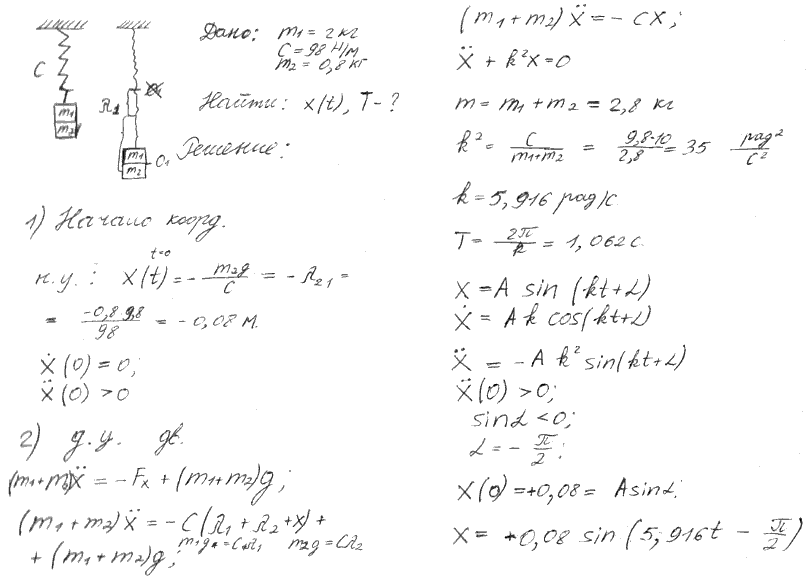 C
m1
m2
λ1
m1
m2
O1
Дано: m1 = 2 кг
C = 98 Н/м
m2 = 0,8 кг
Найти: x(t), T - ?
Решение:
1) Начало коорд.
н.у.: x(t) t=0 = - m2g/C = - λ21 =
= -0,8·9,8/98 = - 0,08 м.
ẋ(0) = 0;
ẍ(0) > 0
2) д.у. дв.
(m1+m2)ẍ = - Fx + (m1+m2)g;
(m1+m2)ẍ = - C(λ1 + λ2 + x) +
+ (m1+m2)g; m1g = Cλ1 m2g = Cλ2
(m1+m2)ẍ = - Cx;
ẍ + k²x = 0
m = m1 + m2 = 2,8 кг
k² = C/(m1+m2) = 9,8·10/2,8 = 35 рад²/с²
k = 5,916 рад/с
T = 2π/k = 1,062 с.
x = A sin (kt+α)
ẋ = A k cos(kt+α)
ẍ = - A k² sin(kt+α)
ẍ(0) > 0;
sin α < 0;
α = - π/2;
x(0) = +0,08 = A sin α;
x = +0,08 sin (5,916t - π/2)